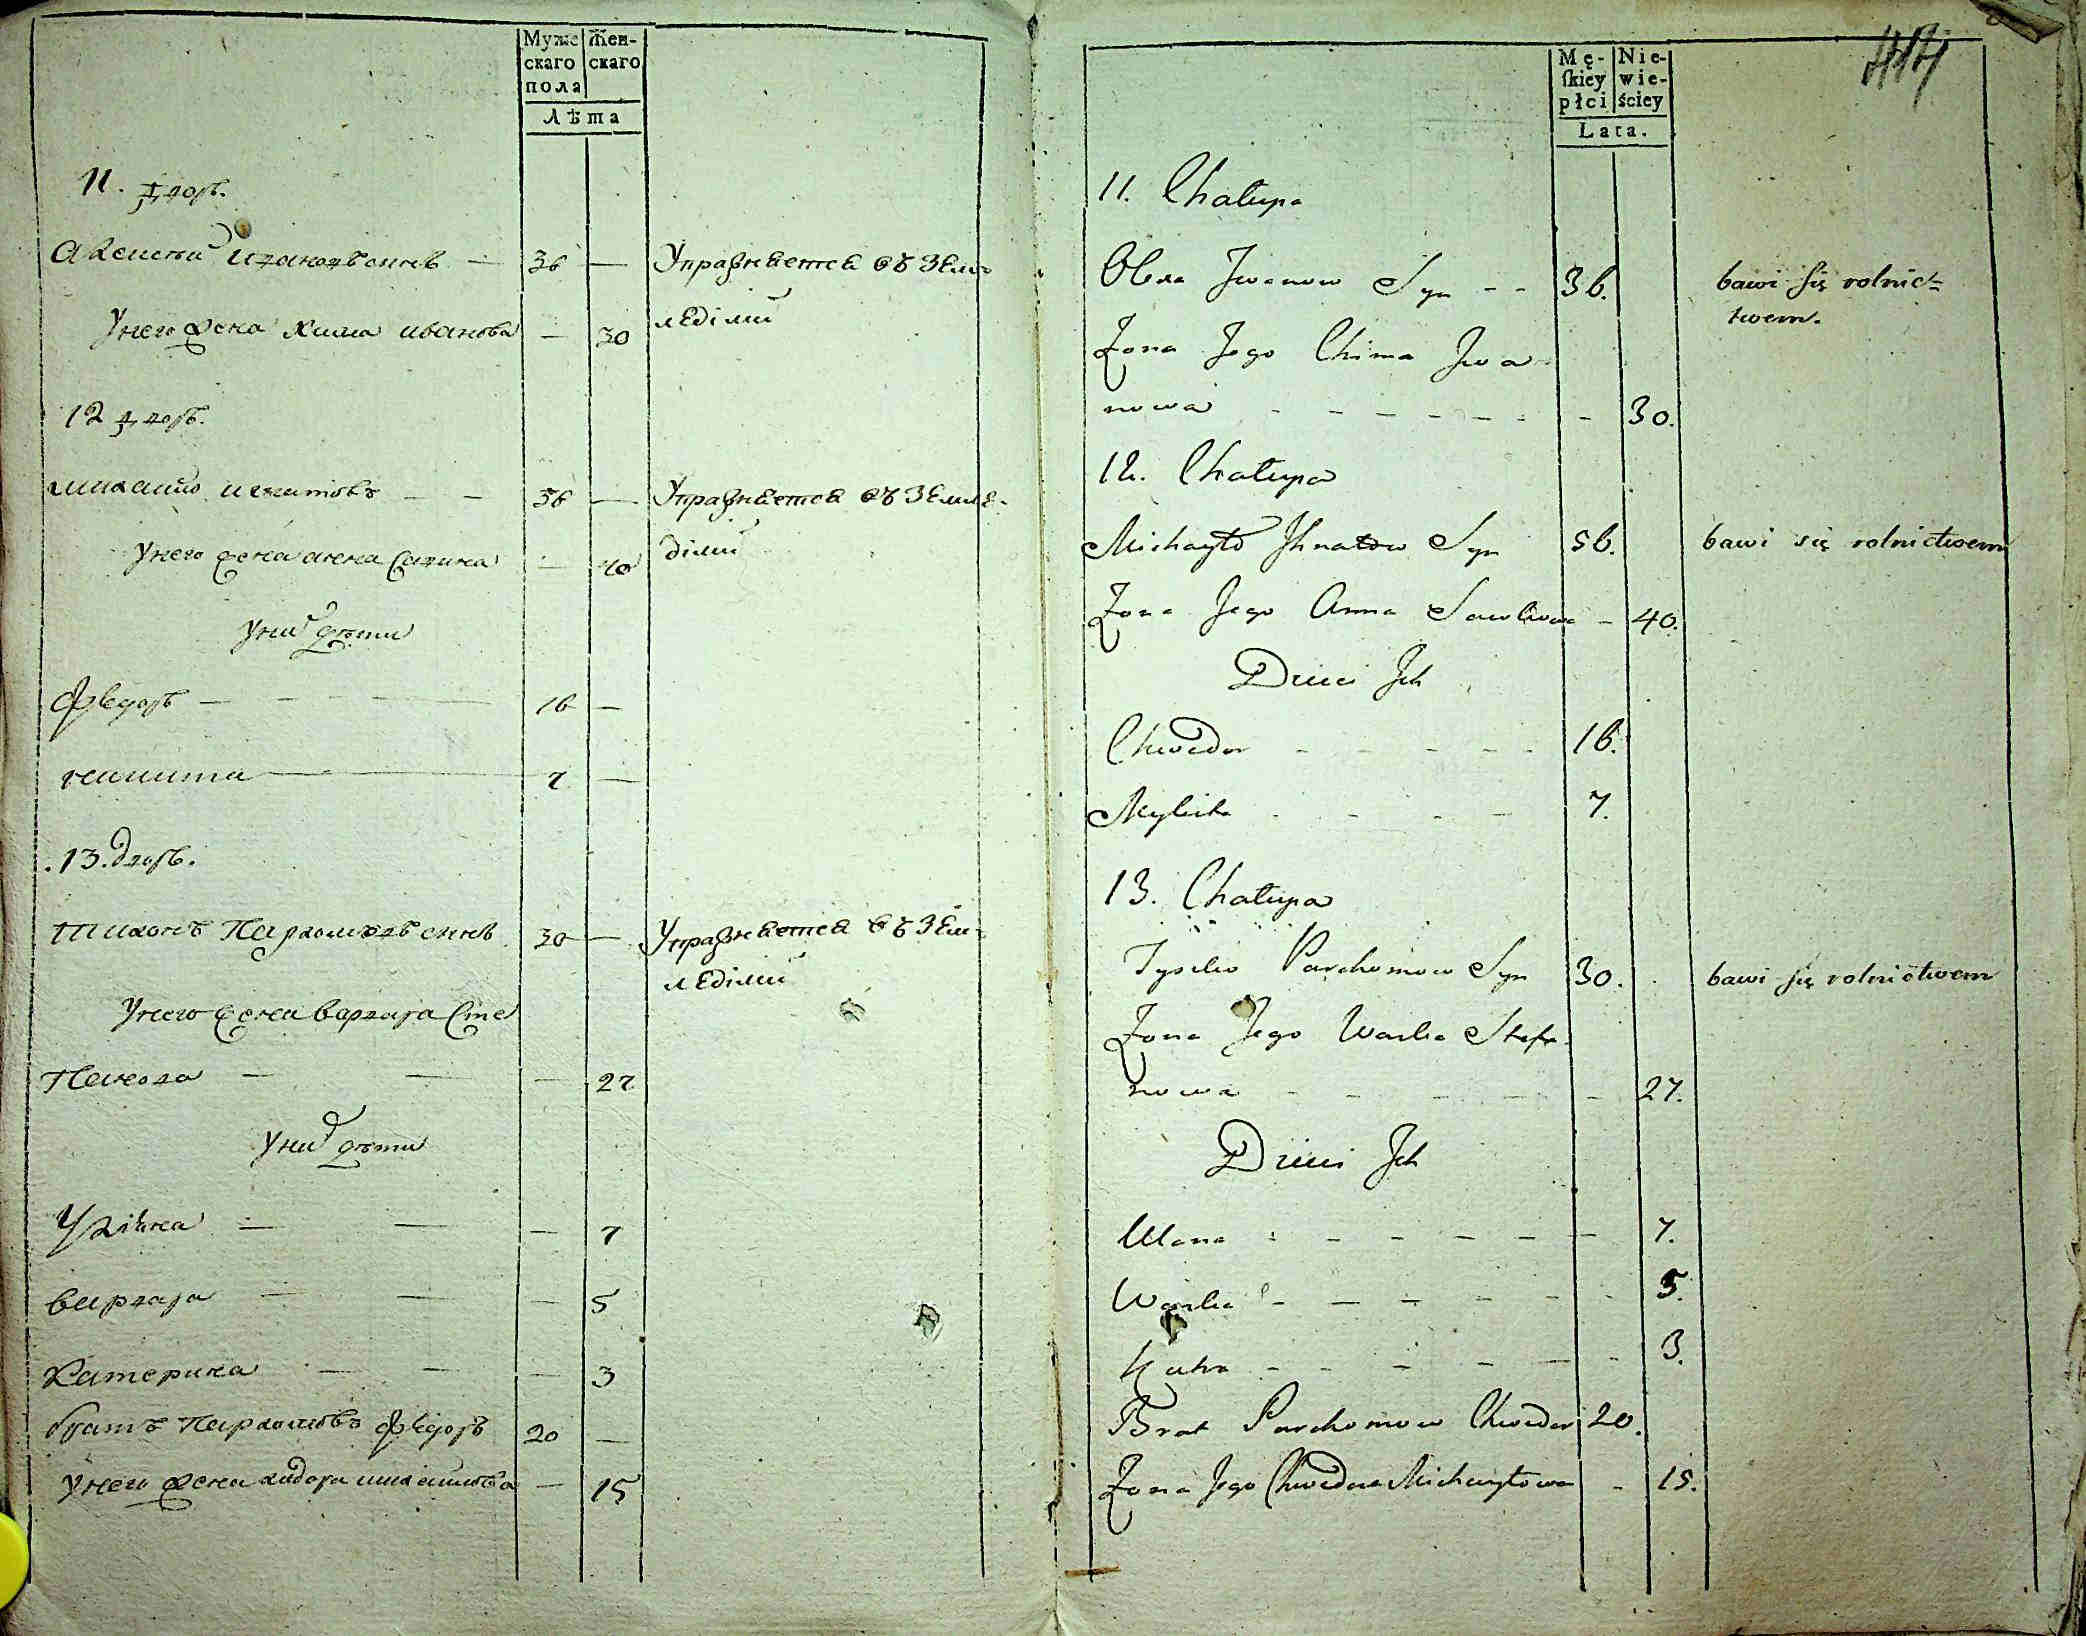 Муже
скаго
пола
Жен-
скаго
Лѣта
11. дворъ.
Авксентий Ивановъ сынъ — 36 — Упражняется въ Зем-
Унего жена Хима Иванова — 30 лѣдѣлии
12 дворъ.
Михайло Игнатовъ — — 56 — Упражняется въ Земле-
Унего жена анна Савина — 40 дѣлии
Унихъ дѣти
Фѣдоръ — — — — 16 —
никита — 7 —
.13. дворъ.
Тихонъ Пархомовъ сынъ 30 — Упражняется въ Зем-
лѣдѣлии
Унего жена Варвара Сте
панова — — — 27
Унихъ дѣти
Ульяна — — — 7
Варвара — — — 5
Катерина — — — 3
братъ Пархомовъ Фѣдоръ 20 —
Унего жена хведора михайлова — 15
Mę-
ſkiey
płci
Nie-
wie-
ściey
Lata.
11. Chałupa
Iwanow Syn - - 36. bawi się rolnic=
twem.
Żona Jego Chima Iwa-
nowa - - - - - - - 30.
12. Chałupa
Michayło Ihnatow Syn 56. bawi się rolnictwem
Żona Jego Anna Sawliowa - 40.
Dzieci Ich
Chwedor - - - - - 16.
Mykita - - - - 7.
13. Chałupa
Parchomow Syn 30. bawi się rolnictwem
Żona Jego Warka Stefa-
nowa - - - - - 27.
Dzieci Ich
Ulana - - - - - - 7.
Warka - - - - - - 5.
- - - - - - 3.
Brat Parchomow Chwedor 20.
Żona Jego Chwedora Michayłowa - 15.